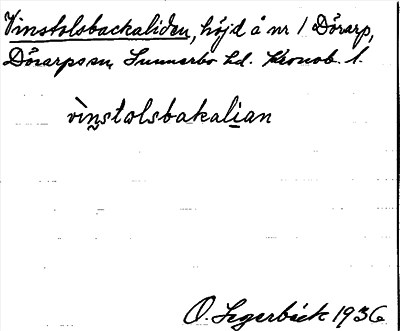 Vinstolsbackaliden, höjd å nr 1 Dörarp,
Dörarps sn, Sunnerbo hd. Kronob. l.
vìnstolsbakalian
O. Segerbäck 1936